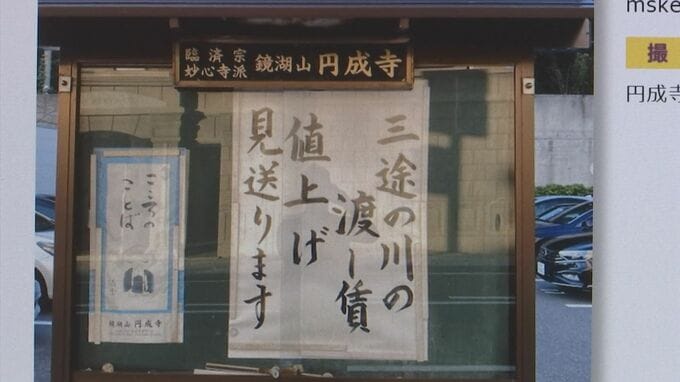 臨済宗
妙心寺派
鏡湖山 円成寺
三途の川の
渡し賃
値上げ
見送ります
こころの
ことば
鏡湖山 円成寺
mske
撮
円成寺